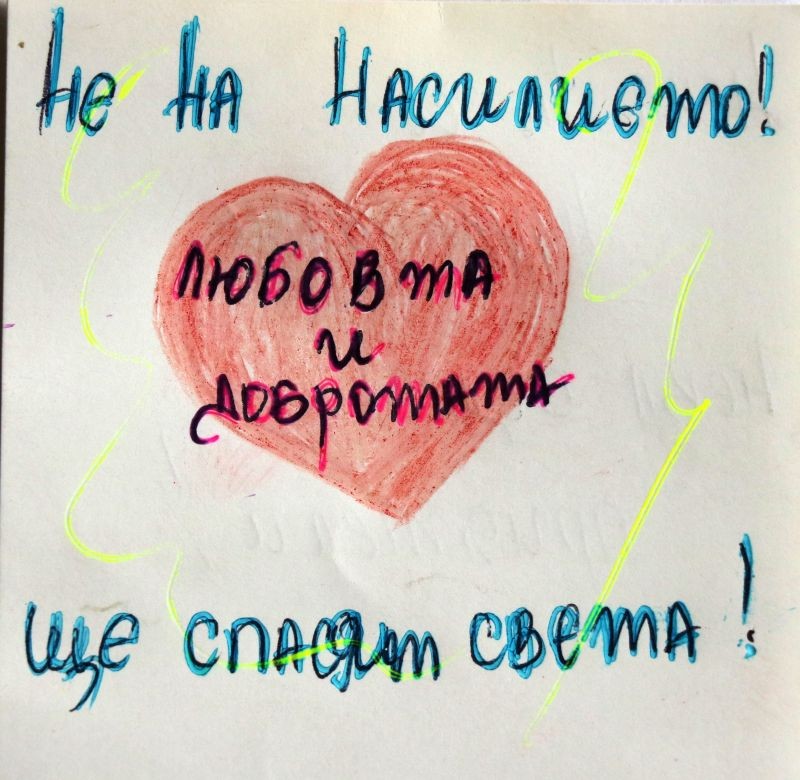 Не на Насилието!
Любовта
и
добротата
ще спасят света!